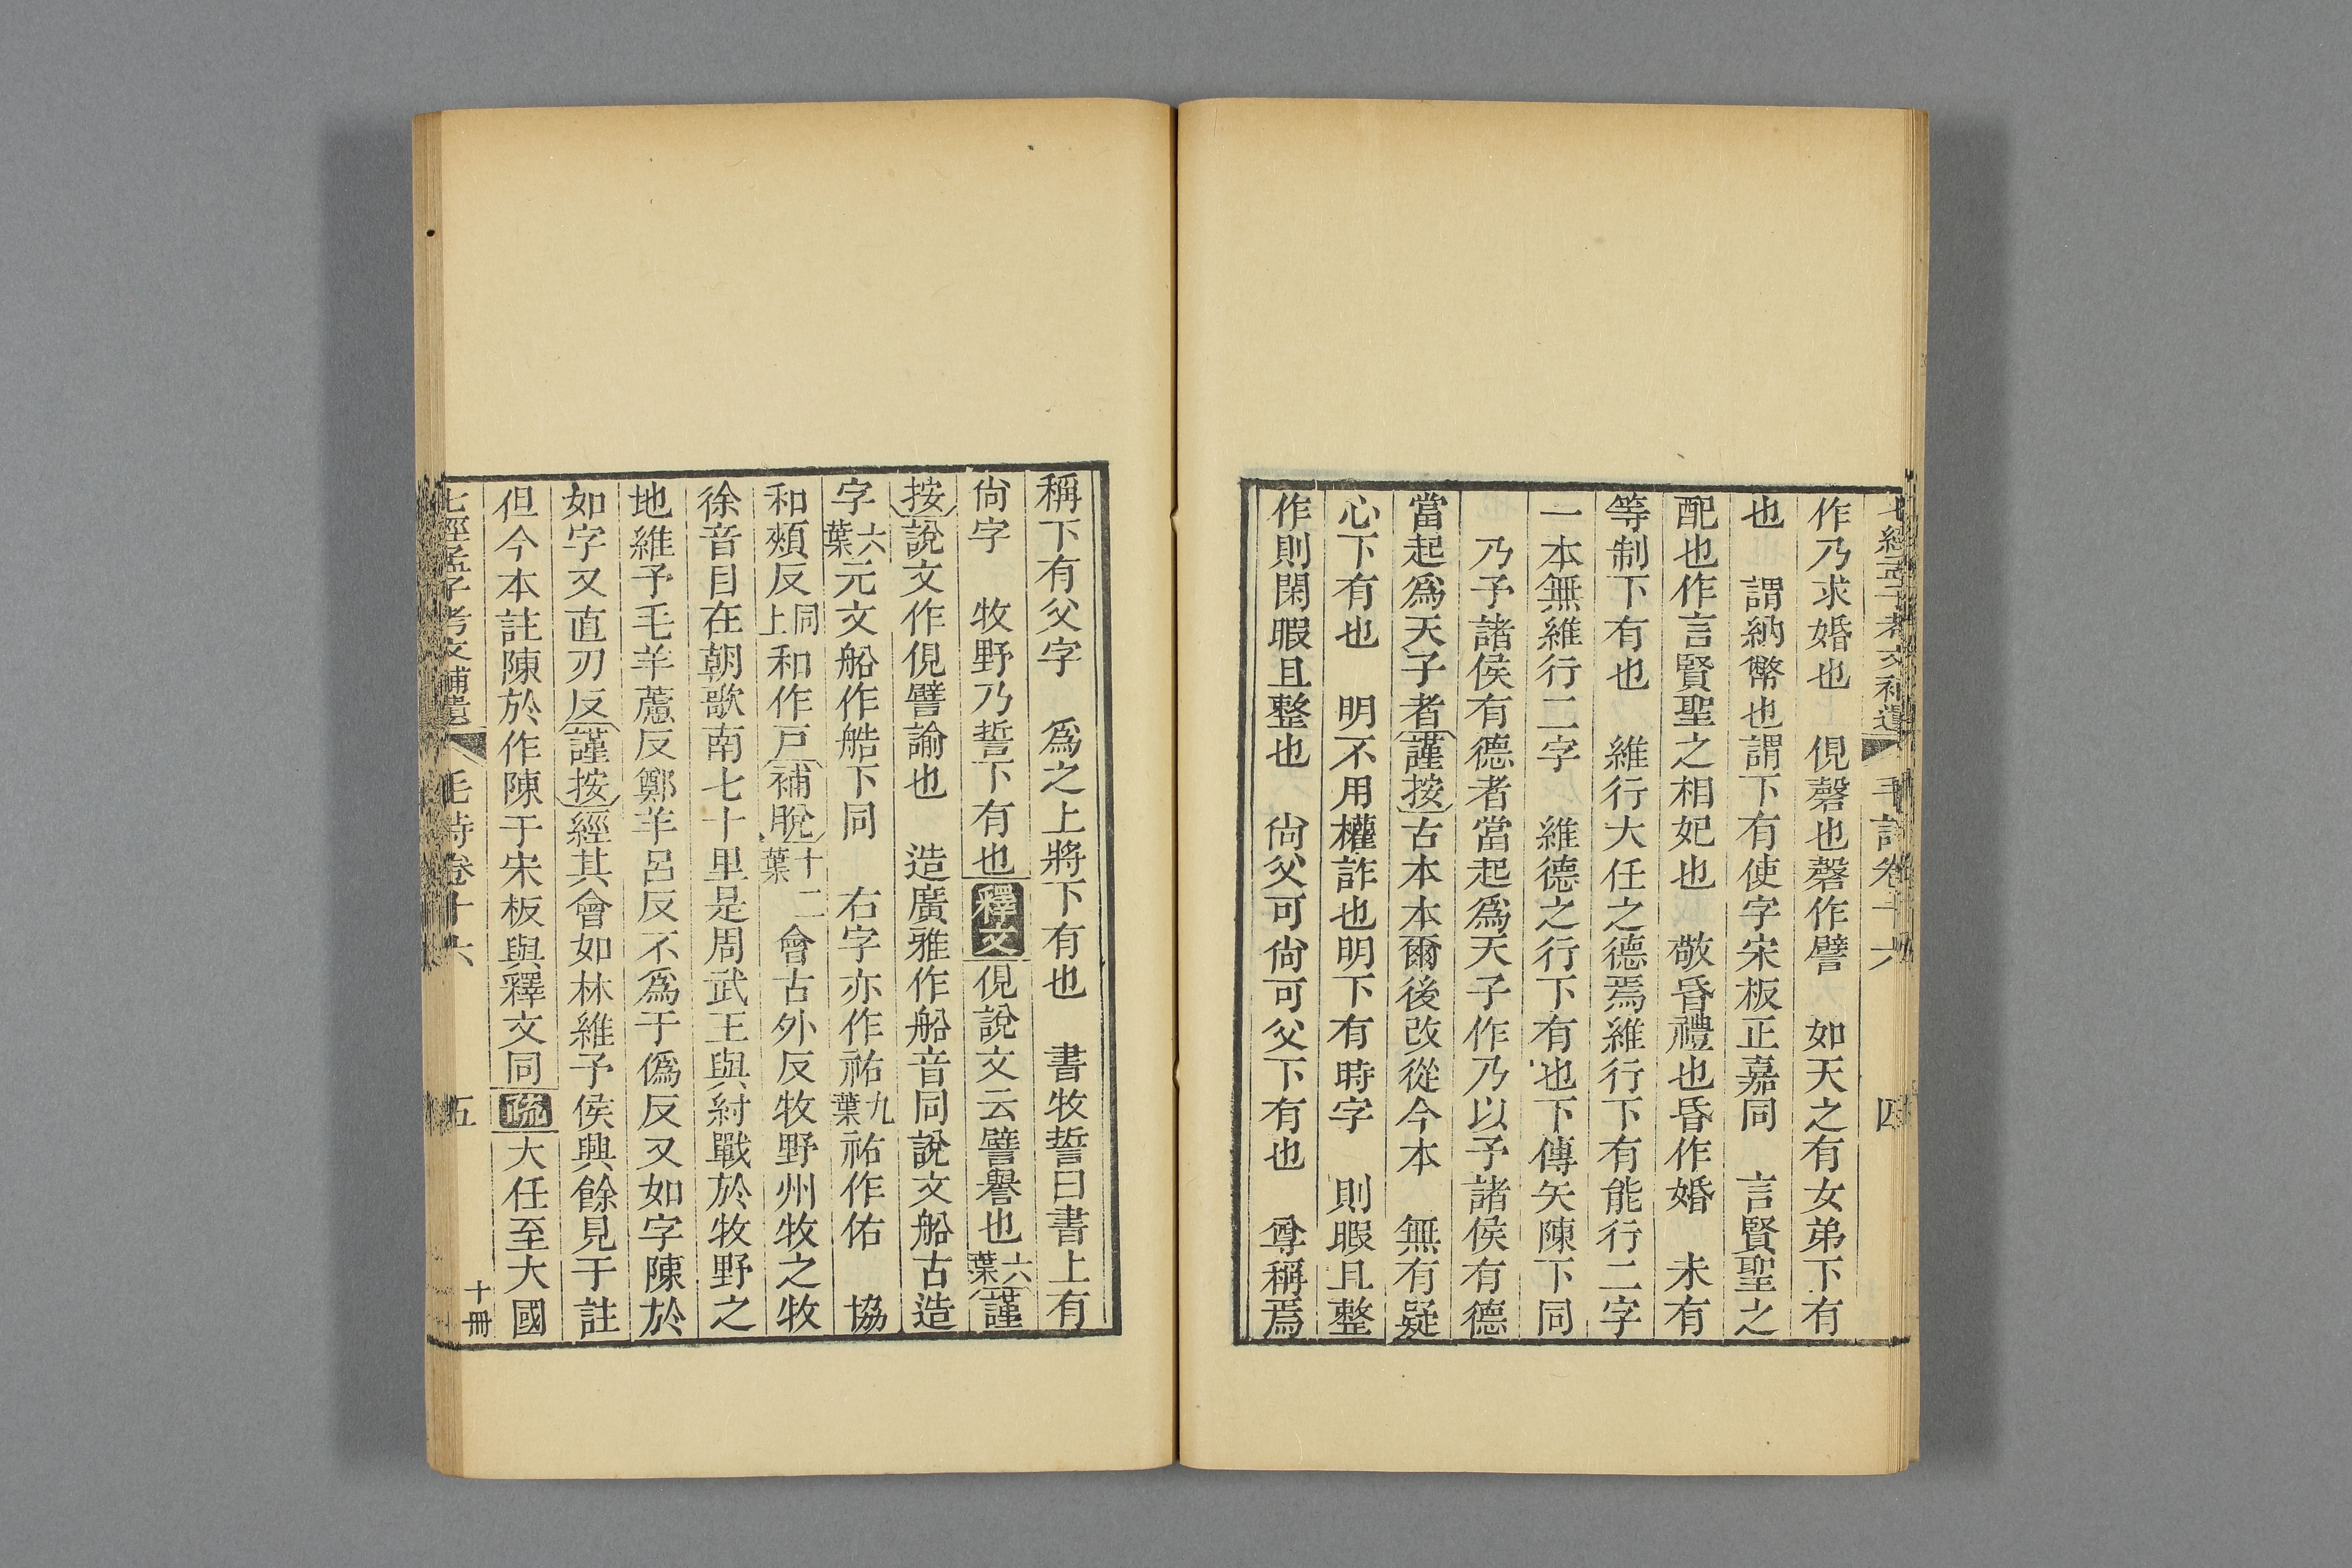 七經孟子考文補遺 毛詩卷十六 四
作乃求婚也 俔磬也磬作譬 如天之有女弟下有
也 謂納幣也謂下有使字宋板正嘉同 言賢聖之
配也作言賢聖之相妃也 敬昏禮也昏作婚 未有
等制下有也 維行大任之德焉維行下有能行二字
一本無維行二字 維德之行下有也下傳矢陳下同
乃予諸侯有德者當起爲天子作乃以予諸侯有德
當起爲天子者謹按古本本爾後改從今本 無有疑
心下有也 明不用權詐也明下有時字 則暇且整
作則閑暇且整也 尙父可尙可父下有也 尊稱焉
稱下有父字 爲之上將下有也 書牧誓曰書上有
尙字 牧野乃誓下有也釋文俔說文云譬譽也六葉謹
按說文作俔譬諭也 造廣雅作船音同說文船古造
字六葉元文船作艁下同 右字亦作祐九葉祐作佑 協
和頰反同上和作戸補脫十二葉會古外反牧野州牧之牧
徐音目在朝歌南七十里是周武王與紂戰於牧野之
地維予毛羊藘反鄭羊呂反不爲于僞反又如字陳於
如字又直刃反謹按經其會如林維予侯興餘見于註
但今本註陳於作陳于宋板與釋文同疏大任至大國
七經孟子考文補遺 毛詩卷十六 五 十冊